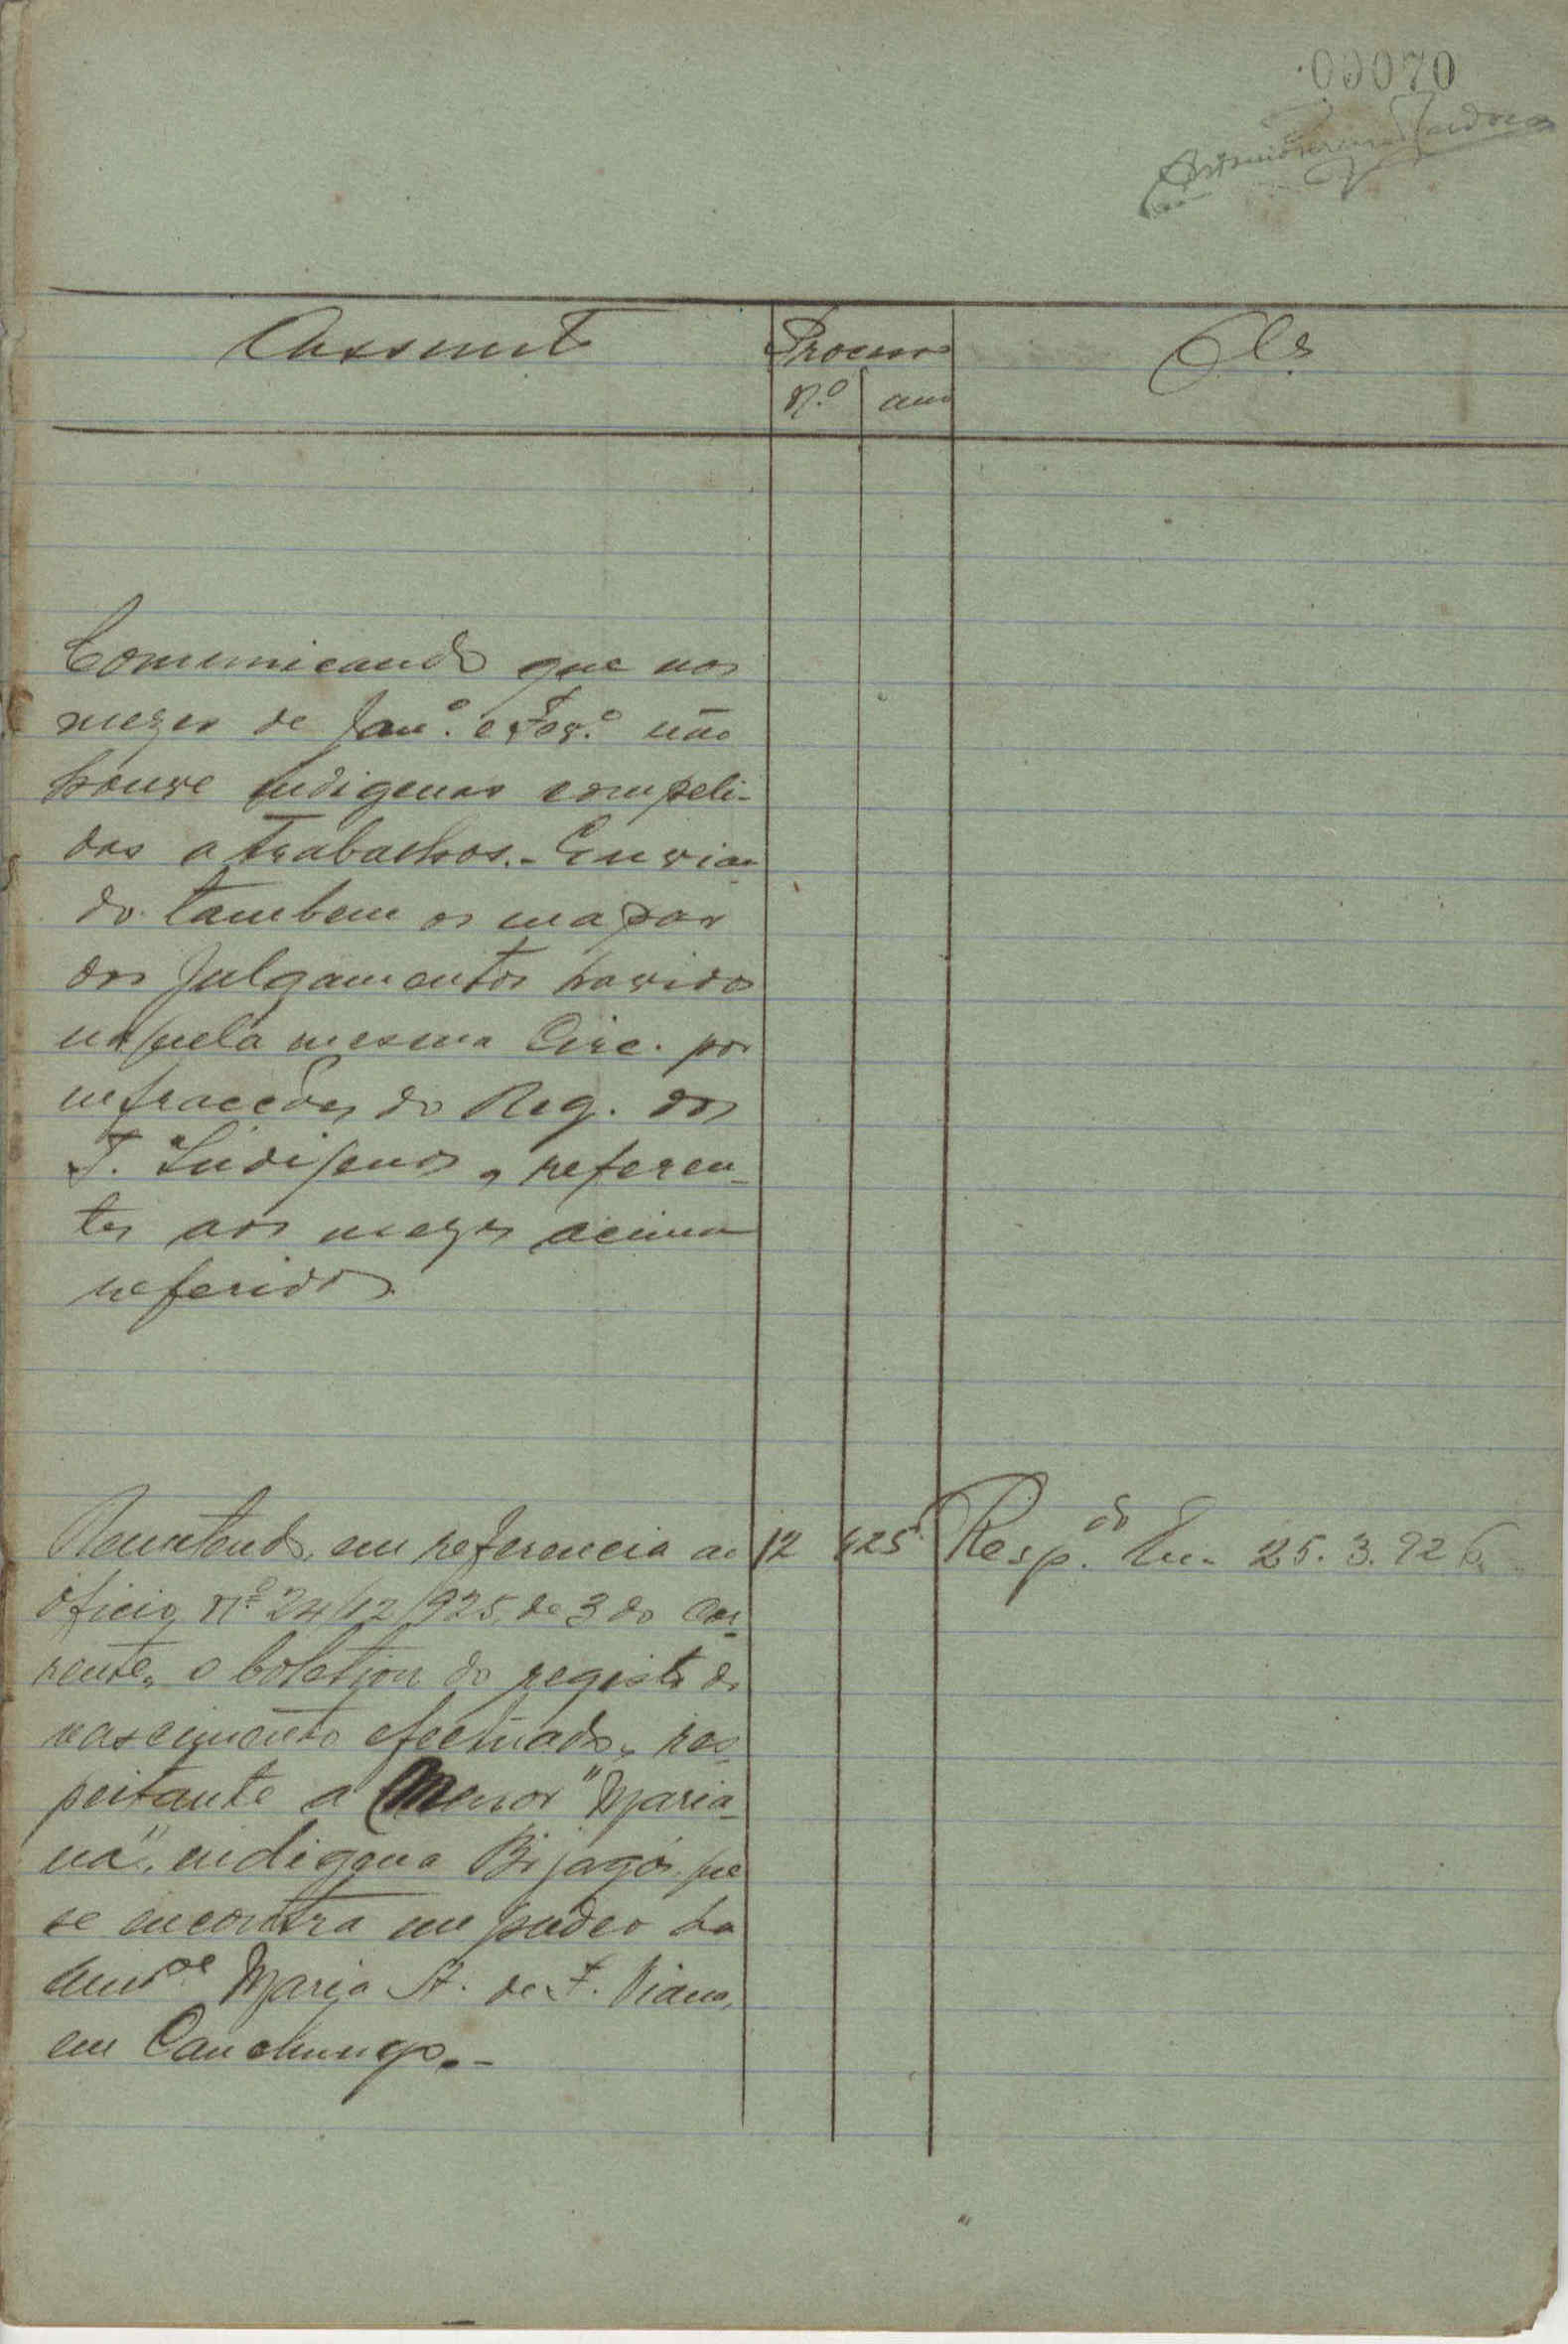 00070
Assunto
Processo
Obs
N.º
ano
Comunicando que nos
mezes de Jan.º e Fev.º não
houve indigenas compeli-
dos a trabalhos.- Envian
do tambem os mapas
dos julgamentos havidos
naquela mesma Circ. por
infracções do Reg. dos
T. Indigenas, referen-
tes aos mezes acima
referidos.
Remetendo, em referencia ao
12
925
Resp.do Em- 25.3.926
oficio Nº 24/12/925, de 3 do Cor-
rente, o boletim do registo de
nascimento efectuado, res-
peitante a menor "Maria-
na", indigena Bijagós, que
se encontra em poder da
Maria A. de F. Viana,
em Canchungo.-